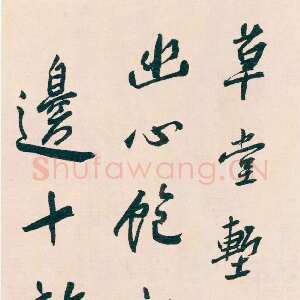 草堂塹
幽心飽
邊十
Shufawang.CN